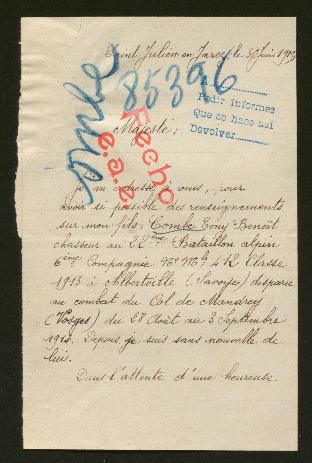 Saint Julien en Jarez, le 30 Juin 1915
85396
A
Pedir informes
Que se hace así
Devolver
Majesté;
Fecho
e.a.e.
Je m'adresse à vous, pour
avoir si possible des renseignements
sur mon fils; Combe Tony Benoît
chasseur au 22ème Bataillon alpin
6ème Compagnie No Mle 412 Classe
1913 à Albertville (Savoie) disparu
au combat du Col de Mandrey
(Vosges) du 28 Août au 3 Septembre
1914. Depuis, je suis sans nouvelle de
lui.
Dans l'attente d'une heureuse